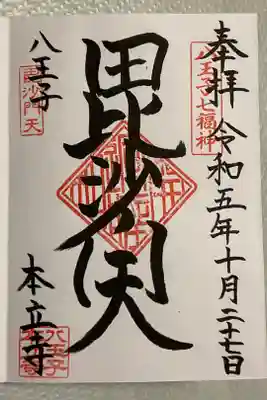 奉拝 令和五年十月二十七日
八王子七福神
毘沙門天
八王子
毘沙門天
本立寺